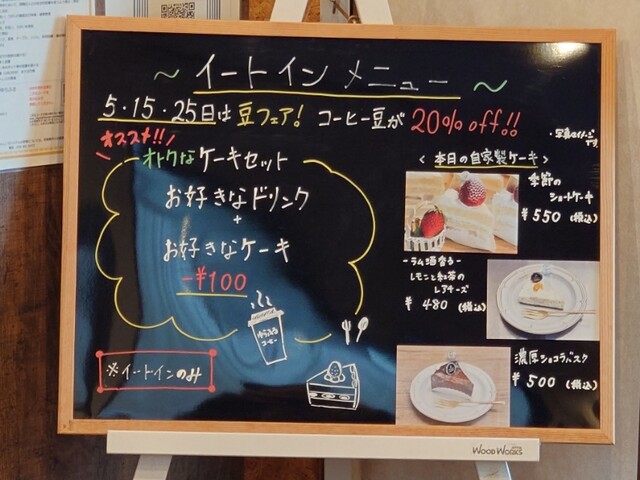 ~ イートイン メニュー ~
5・15・25日は 豆フェア! コーヒー豆が 20% off!!
・写真はイメージです。
オススメ!!
オトクなケーキセット
お好きなドリンク
+
お好きなケーキ
-¥100
ゆらふる
コーヒー
※イートインのみ
< 本日の自家製ケーキ >
季節の
ショートケーキ
¥550 (税込)
-ラム酒香る-
レモンと紅茶の
レアチーズ
¥ 480 (税込)
濃厚ショコラバスク
¥ 500 (税込)
WOODWORKS